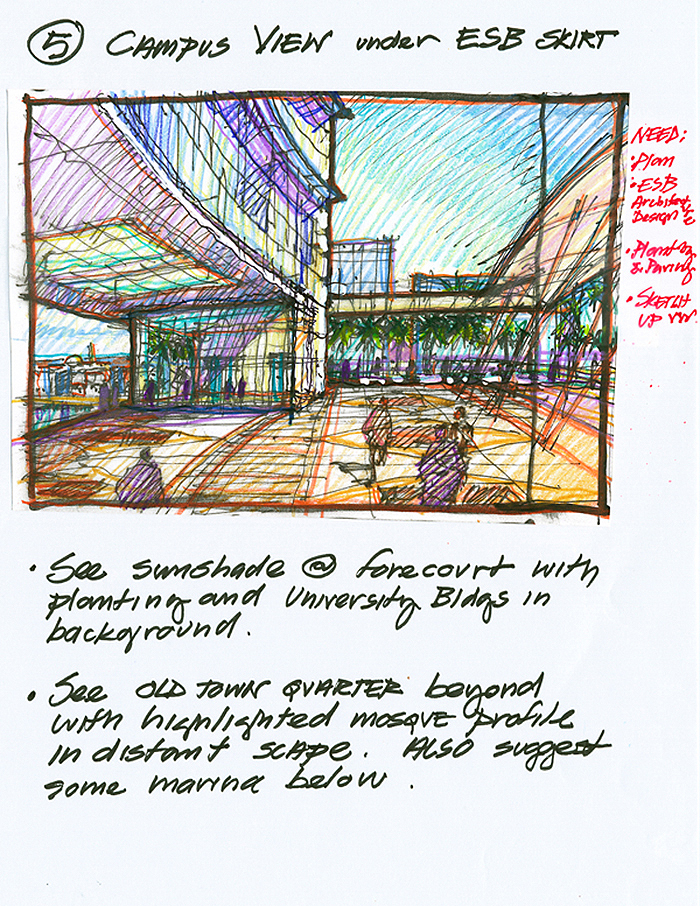 5 CAMPUS VIEW under ESB SKIRT
NEED:
• Plan
• ESB
Architect
Design
• Planting
& Paving
• SKETCH
UP
• See sunshade @ forecourt with
planting and University Bldgs in
background.
• See OLD TOWN QUARTER beyond
with highlighted mosque profile
in distant scape. ALSO suggest
some marina below.